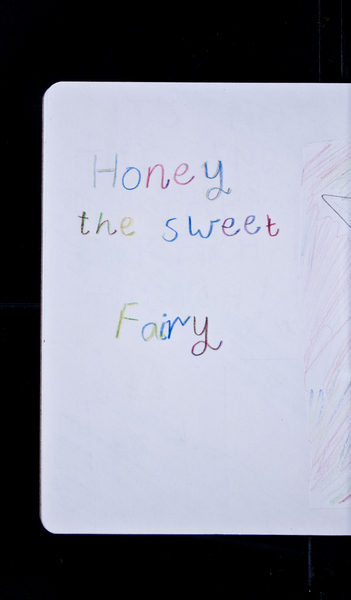 Honey
the sweet
Fairy